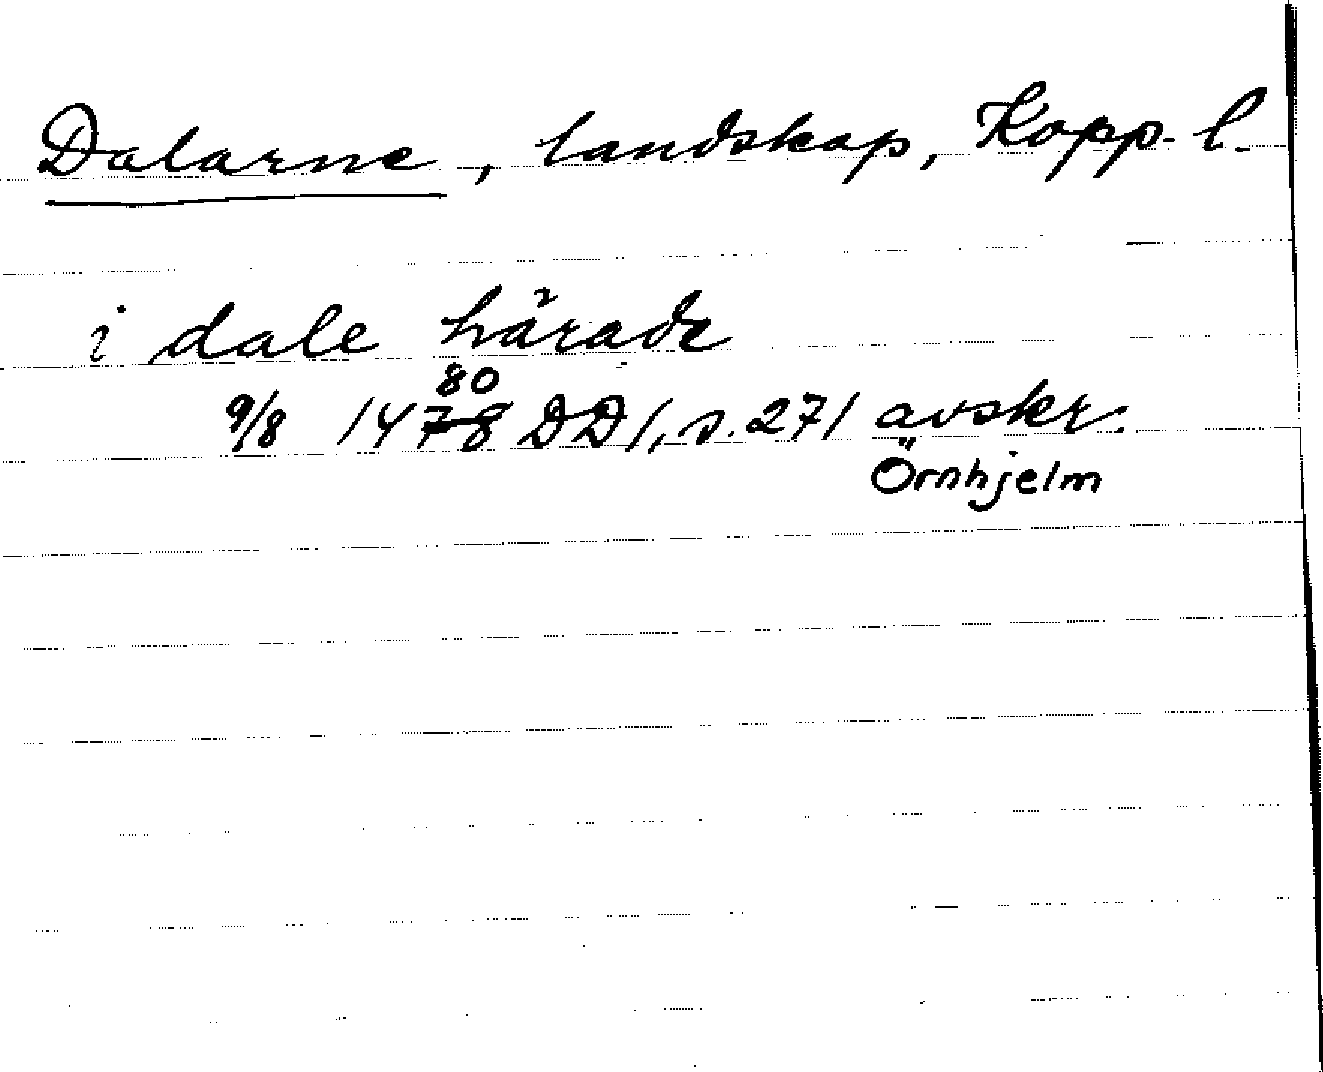 Dalarne, landskap, Kopp. l.
i dale hårade
80
9/8 1478 DD1, s. 271 avskr.
Örnhjelm